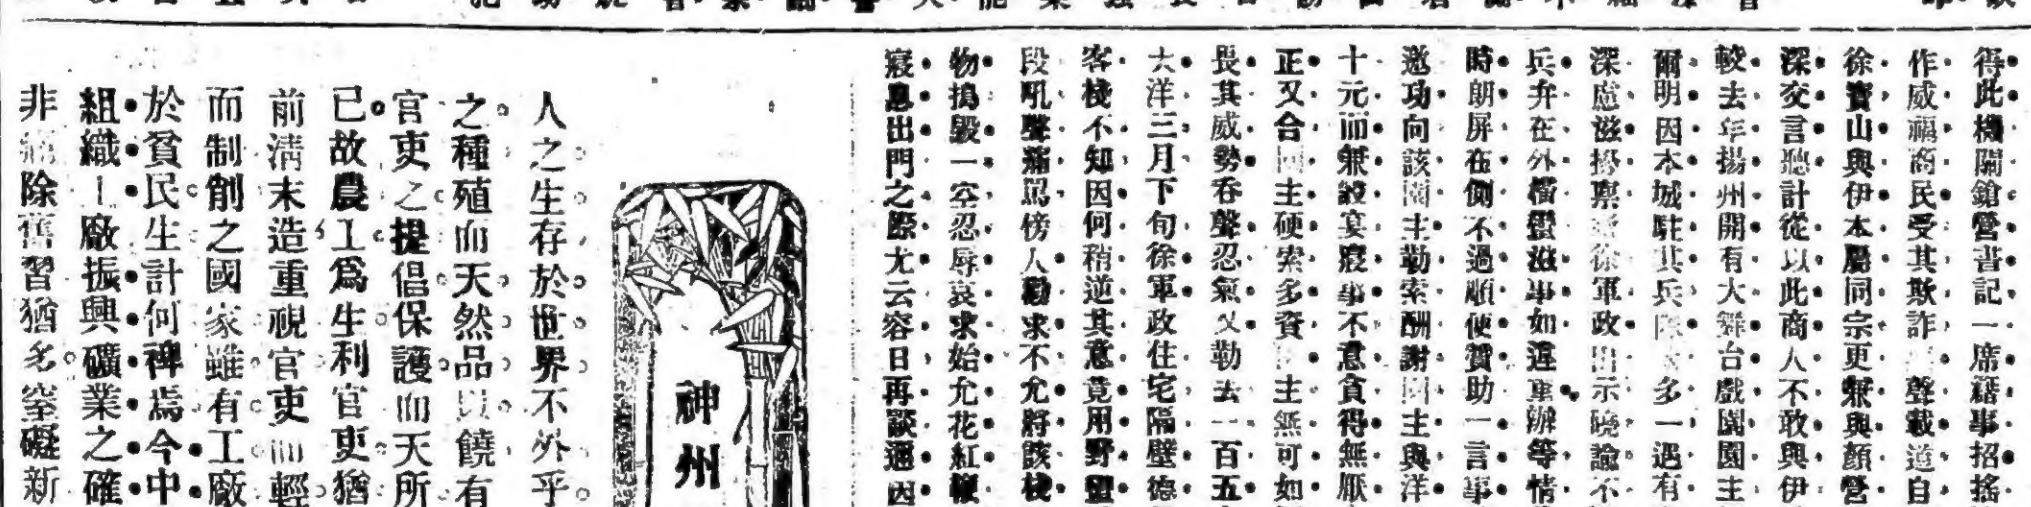 得此機關鎗營書記一席藉事招搖
作威福商民受其欺詐聲載道自
徐寶山與伊本屬同宗更兼與顏營
深交言聽計從以此商人不敢與伊
較去年揚州開有大舞台戲園園主
爾明因本城駐其兵多一遇有
深慮滋擾稟徐軍政出示曉諭不
兵弁在外橫蠻滋事如違重辦等情
時朗屏在側不過順便贊助一言事
邀功向該園主勤索酬謝園主與洋
十元而兼設宴寢事不意貪得無厭
正又合園主硬索多資主無可如
畏其威勢吞聲忍氣又勒去一百五
大洋三月下旬徐軍政住宅隔壁德
客棧不知因何稍逆其意竟用野蠻
段吼聲痛罵傍人勸求不允將該棧
物搗毀一空忍辱哀求始允花紅鞭
寢息出門之際尤云容日再談邇因
神州
人之生存於世界不外乎
之種殖而天然品以饒有
官吏之提倡保護而天所
已故農工爲生利官吏猶
前清末造重視官吏而輕
而制創之國家雖有工廠
於貧民生計何裨焉今中
組織工廠振興礦業之確
非除舊習猶多窒礙新